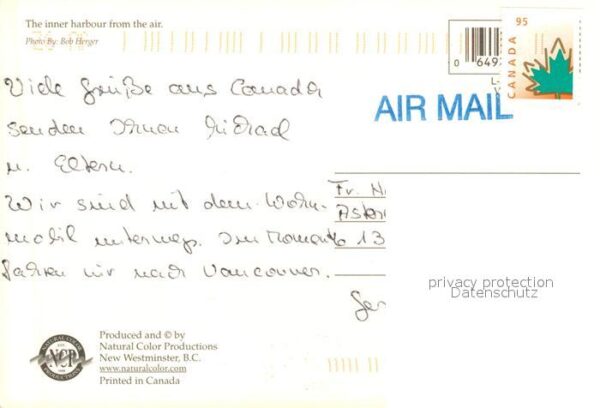 The inner harbour from the air.
Photo By: Bob Herger
95
CANADA
0 649
AIR MAIL
Viele Grüße aus Canada
senden Ihnen Michael
u. Eltern.
Wir sind mit dem Wohn-
mobil unterwegs. Im Moment
fahren wir nach Vancouver.
Fr.
Aster
13
privacy protection
Datenschutz
NATURAL COLOR
NCP
PRODUCTIONS
Produced and © by
Natural Color Productions
New Westminster, B.C.
www.naturalcolor.com
Printed in Canada